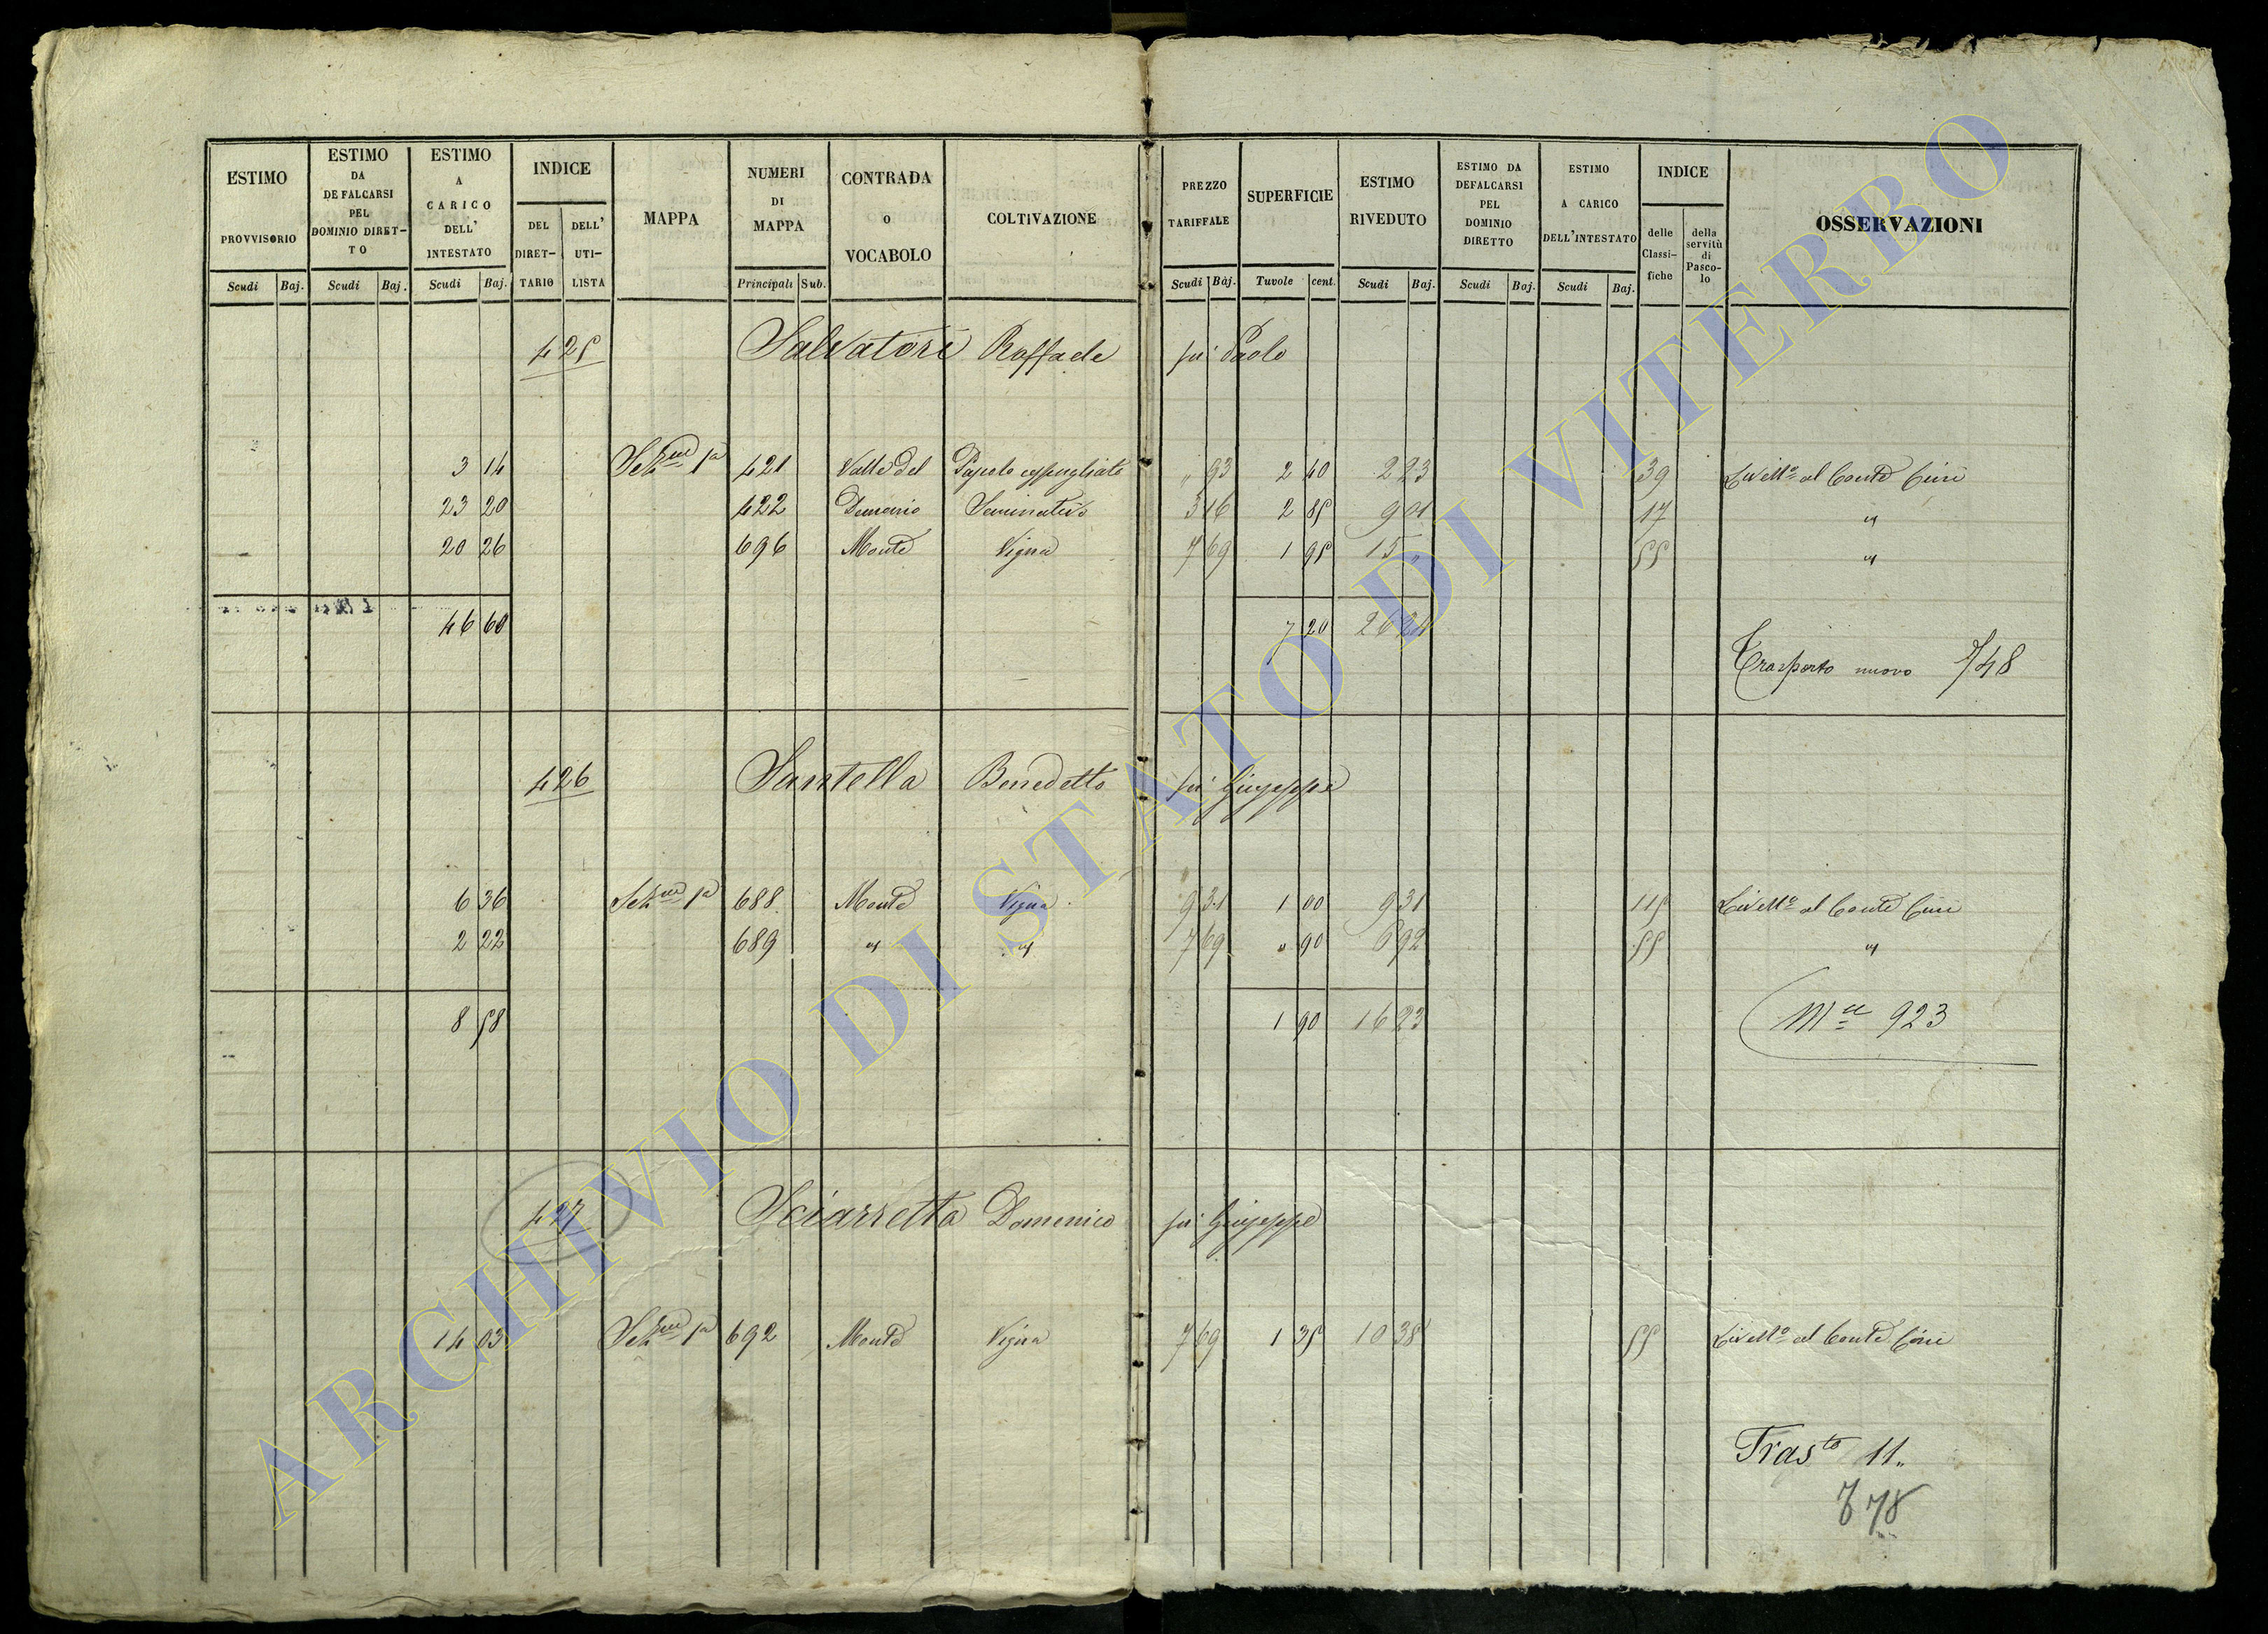 ESTIMO PROVVISORIO Scudi Baj.
ESTIMO DA DEFALCARSI PEL DOMINIO DIRET-TO Scudi Baj.
ESTIMO A CARICO DELL' INTESTATO Scudi Baj.
INDICE DEL DIRET-TARIO DELL' UTI-LISTA
MAPPA
NUMERI DI MAPPA Principali Sub.
CONTRADA o VOCABOLO
COLTIVAZIONE
PREZZO TARIFFALE Scudi Baj.
SUPERFICIE Tavole cent.
ESTIMO RIVEDUTO Scudi Baj.
ESTIMO DA DEFALCARSI PEL DOMINIO DIRETTO Scudi Baj.
ESTIMO A CARICO DELL'INTESTATO Scudi Baj.
INDICE delle Classi-fiche della servitù di Pasco-lo
OSSERVAZIONI
425 Salvatori Raffaele fu Paolo
3 14 Sez.ne 1a 421 Valle del " 93 2 40 2 23 39 Livell.o al Conte Cini
23 20 422 Seminativo 3 16 2 85 9 01 17 "
20 26 696 Monte Vigna 7 69 1 95 15 " 55 "
46 60 7 20 26 24
Trasporto nuovo 748
426 Santella Benedetto fu Giuseppe
6 36 Sez.ne 1a 688 Monte Vigna 9 31 1 00 9 31 115 Livell.o al Conte Cini
2 22 689 " " 7 69 " 90 6 92 55 "
8 58 1 90 16 23
923
427 Sciarretta Domenico fu Giuseppe
14 03 Sez.ne 1a 692 Monte Vigna 7 69 1 35 10 38 55 Livell.o al Conte Cini
Tras.to 11"
778
ARCHIVIO DI STATO DI VITERBO